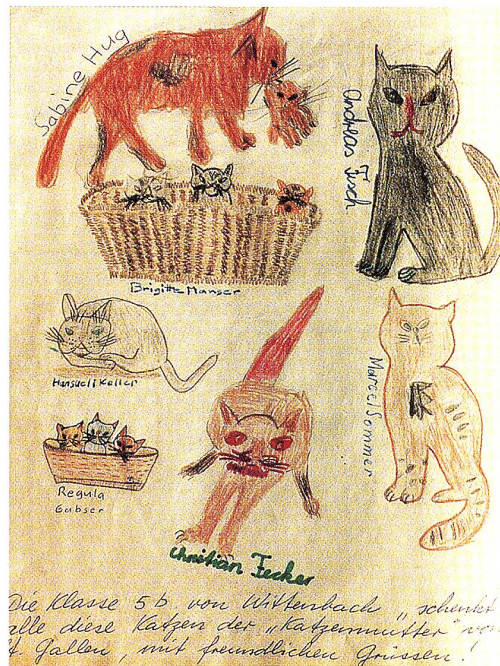 Sabine Hug
Andreas Isch
Brigitte Manser
Hansueli Keller
Marcel Sommer
Regula
Gubser
Christian Fecker
Die Klasse 5b. von Wittenbach „schenkt"
alle diese Katzen der „Katzenmutter" von
t. Gallen, mit freundlichen Grüssen!